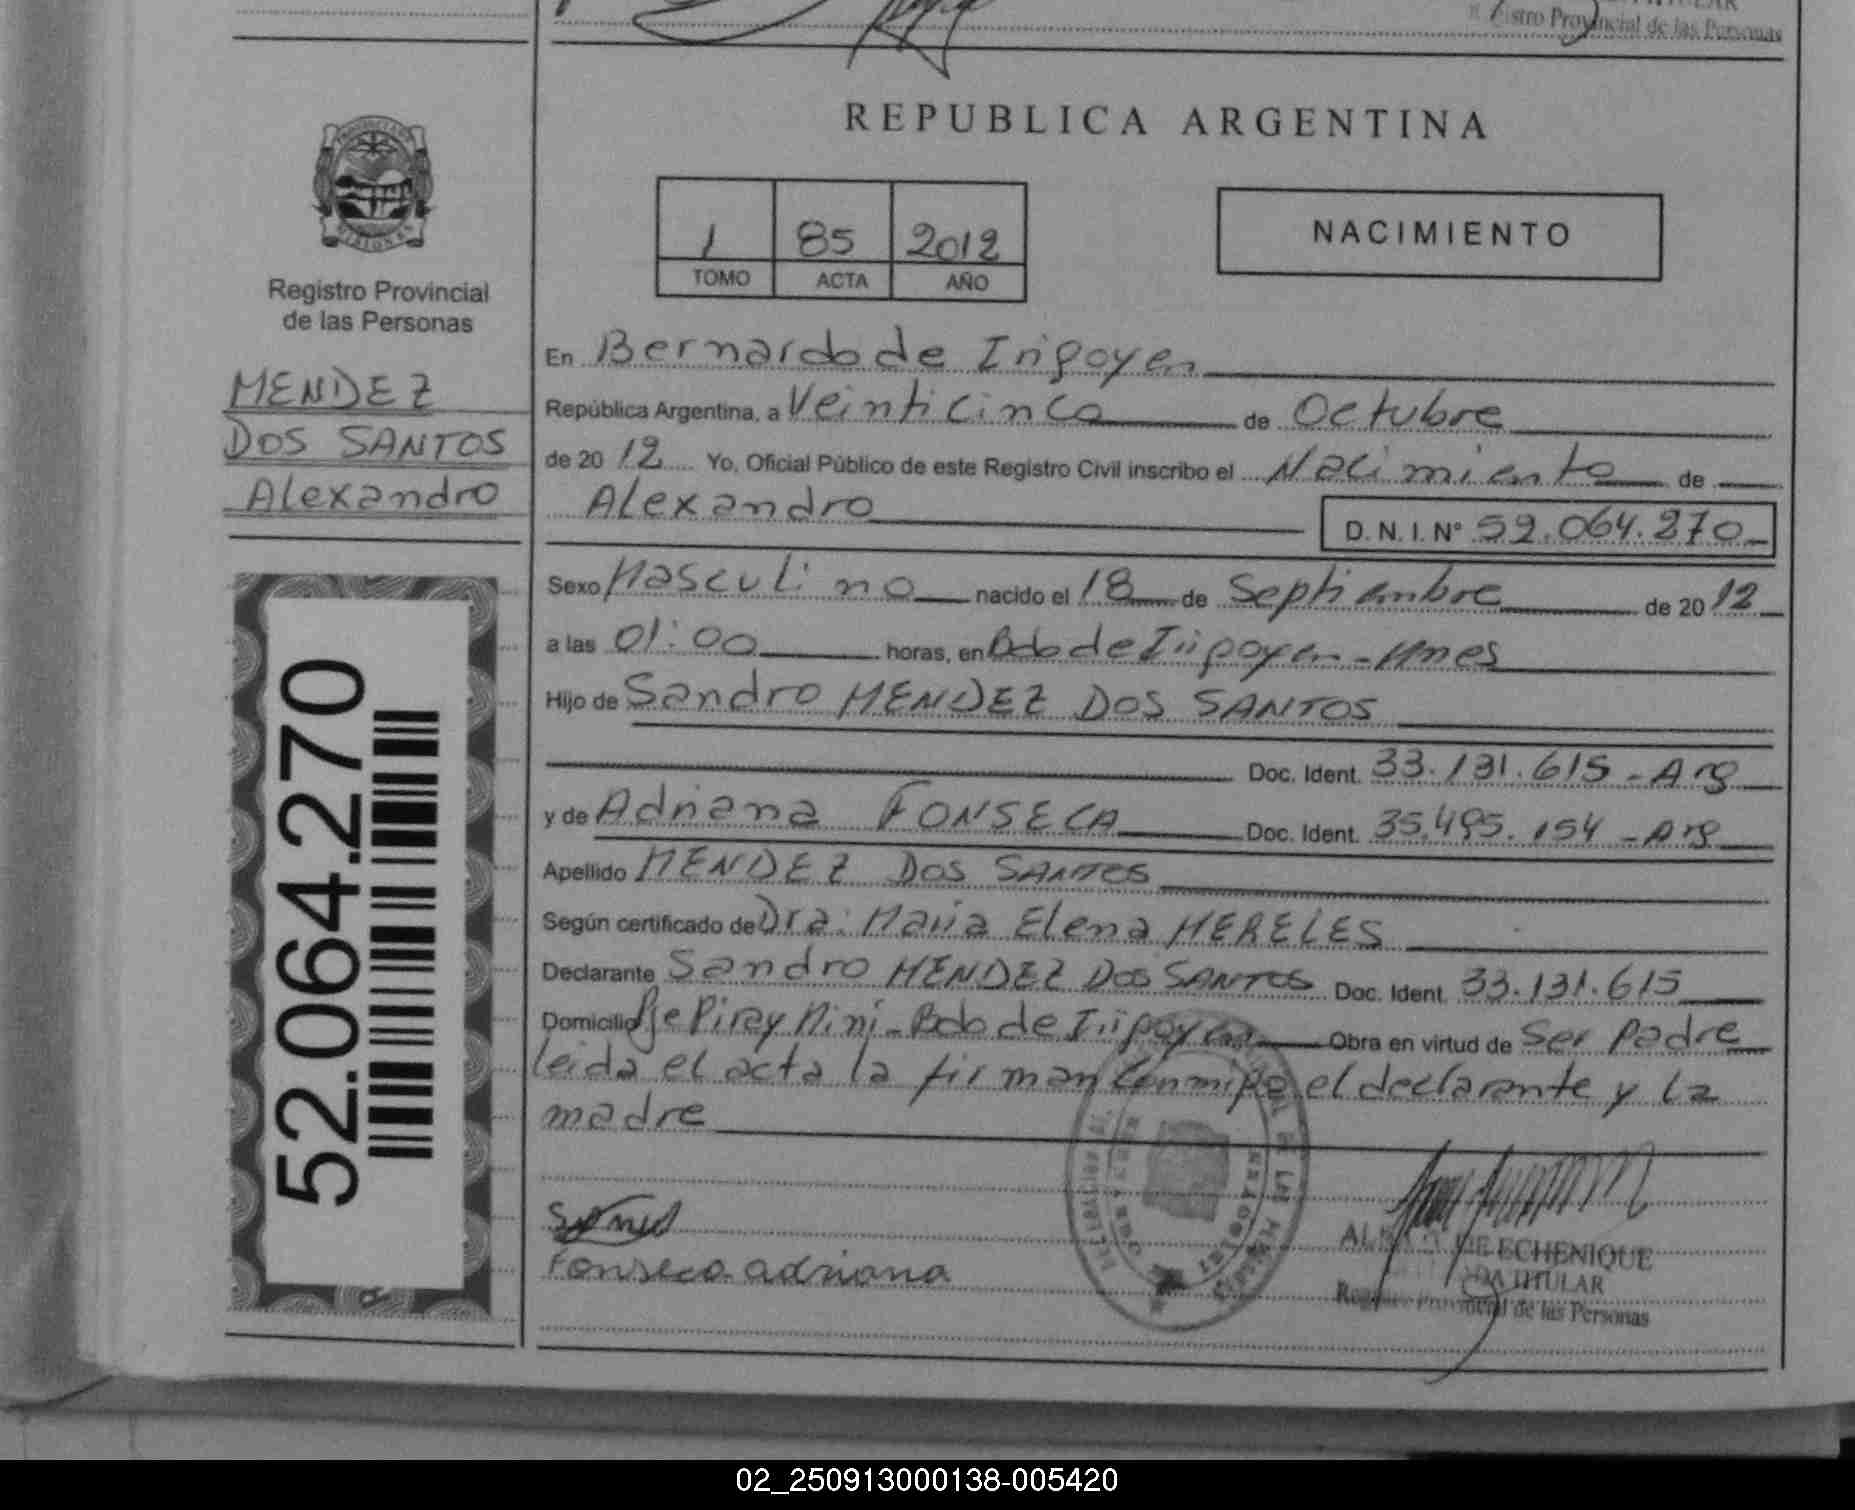 istro Provincial de las Personas
REPUBLICA ARGENTINA
1 85 2012
TOMO ACTA AÑO
NACIMIENTO
Registro Provincial
de las Personas
MENDEZ
DOS SANTOS
Alexandro
52.064.270
En Bernardo de Irigoyen
República Argentina, a Veinticinco de Octubre
de 2012 Yo, Oficial Público de este Registro Civil inscribo el Nacimiento de
Alexandro D.N.I.Nº 52.064.270
Sexo Masculino nacido el 18 de Septiembre de 2012
a las 01:00 horas, en Bdo de Irigoyen - Mnes
Hijo de Sandro MENDEZ DOS SANTOS
Doc. Ident. 33.131.615 - Arg
y de Adriana FONSECA Doc. Ident. 35.495.154 - Arg
Apellido MENDEZ DOS SANTOS
Según certificado de Dra: Maria Elena MERELES
Declarante Sandro MENDEZ DOS SANTOS Doc. Ident. 33.131.615
Domicilio Pje Piray Mini - Bdo de Irigoyen Obra en virtud de Ser Padre
leida el acta la firman conmigo el declarante y la
madre
Fonseca adriana
DE ECHENIQUE
TITULAR
Registro Provincial de las Personas
02_250913000138-005420